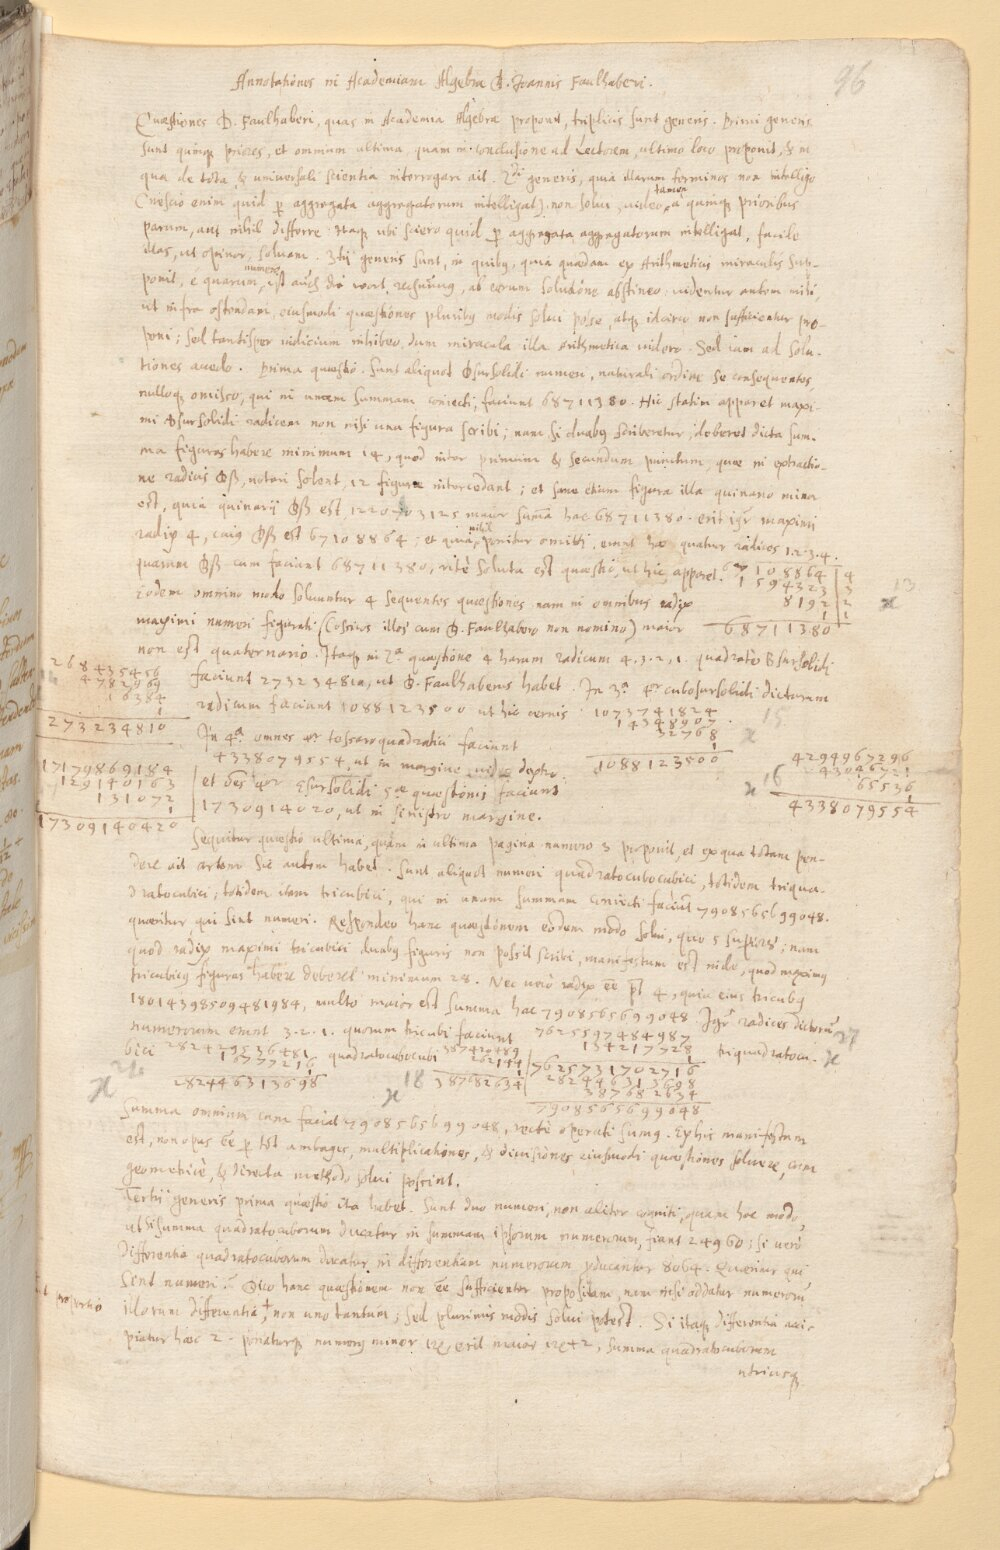 96
Annotationes in Academiam Algebræ D. Joannis Faulhaberi.
Quæstiones D. Faulhaberi, quas in Academia Algebræ proponit, triplicis sunt generis. Primi generis
sunt quinq priores, et omnium ultima, quam in conclusione ad Lectorem, ultimo loco proponit, & in
qua de tota & universali scientia interrogari ait. 2di generis, quia illarum terminos non intelligo
(nescio enim quid p aggregata aggregatorum intelligat) non solui, video tamen a quinq prioribus
parum, aut nihil differre: Itaq ubi sciero quid p aggregata aggregatorum intelligat, facile
illas, ut opinor, soluam. 3tii generis sunt, in quibq, quia quædam ex Arithmeticis miraculis sup-
ponit, è quarum numero est auch die wort rechnung, ab eorum solutione abstineo; videntur autem mihi,
ut infra ostendam, eiusmodi quæstiones pluribq modis solui posse, atq idcirco non sufficienter pro-
poni; sed tantisper iudicium inhibeo, dum miracula illa Arithmetica videro. Sed iam ad solu-
tiones accedo. Prima quæstio. Sunt aliquot Dsursolidi numeri, naturali ordine se consequentes,
nulloq omisso, qui in unam summam coniecti, faciunt 68711380. Hic statim apparet maxi-
mi Dsursolidi radicem non nisi una figura scribi; nam si duabq scriberetur, deberet dicta sum-
ma figuras habere minimum 14, quod inter primum & secundum punctum, quæ in extractio-
ne radicis Dß, notari solent, 12 figuræ intercedant; et sane etiam figura illa quinario minor
est, quia quinarij Dß est, 1220703125 maior suma hac 68711380. erit igr maximi
radix 4, cuiq Dß est 67108864; et quia nihil ponitur omitti, erunt hæ quatuor radices 1.2.3.4.
quarum Dß cum faciunt 68711380, ritè soluta est quæstio, ut hic apparet. 67108864 | 4
1594323 | 3
8192 | 2
1 | 1
68711380
13
Eodem omnino modo soluuntur 4 sequentes quæstiones nam in omnibus radix
maximi numeri figurati (Cossicos illos cum D. Faulhabero non nomino) maior
non est quaternario. Itaq in 2a quæstione 4 harum radicum 4.3.2,1. quadrato Bsursolidi
faciunt 273234810, ut D. Faulhaberus habet. In 3a 4or cubosursolidi dictarum
radicum faciunt 1088123500 ut hic cernis.
268435456
4782969
16384
1
273234810
1073741824
14348907
32768
1
1088123500
15
In 4a omnes 4or tessaraquadratici faciunt
4338079554, ut in margine vides dextro.
et oes 4or Esursolidi 5æ quæstionis faciunt
17309140420, ut in sinistro margine.
17179869184
129140163
131072
1
17309140420
16
4294967296
43046721
65536
1
4338079554
Sequitur quæstio ultima, quam in ultima pagina numero 3 proponit, et ex qua totam pen-
dere ait artem. Sic autem habet. Sunt aliquot numeri quadratocubocubici, totidem triqua-
dratocubici; totidem item tricubici, qui in unam summam coniecti faciut 7908565699048.
quæritur, qui sint numeri. Respondeo hanc quæstionem eodem modo solui, quo 5 supiores; nam
quod radix maximi tricubici duabq figuris non possit scribi, manifestum est inde, quod maximq
tricubicq figuras habere deberet minimum 28. Nec uerò radix ee pt 4, quia eius tricubq
18014398509481984, multo maior est summa hac 7908565699048. Igr radices dictorum
numerorum erunt 3.2.1. quorum tricubi faciunt 7625597484987
134217728
1
7625731702716
27
triquadratocu-
bici 282429536481
16777216
1
28244631 3698
24
quadratocubocubi 387420489
262144
1
387682634
18
282446313698
387682634
7908565699048
Summa omnium cum faciat 7908565699048, recte operati sumq. Ex his manifestum
est, non opus ee p tot ambages, multiplicationes, & diuisiones eiusmodi quæstiones soluere, cum
geometricè, & directa methodo solui possint.
Tertij generis prima quæstio ita habet. Sunt duo numeri, non aliter cogniti, quam hoc modo,
ut si summa quadratocuborum ducatur in summam ipsorum numerorum, fiant 24960; si uero
differentia quadratocuborum ducatur in differentiam numerorum pducantur 8064. Quæritur qui
sint numeri? Dico hanc quæstionem non ee sufficienter propositam, nam nisi addatur numerorum
illorum differentia, + non uno tantum; sed plurimis modis solui potest. Si itaq differentia acci-
piatur hæc 2. ponaturq numerq minor 1R, erit maior 1R+2, summa quadratocuborum
proportio
utriusq